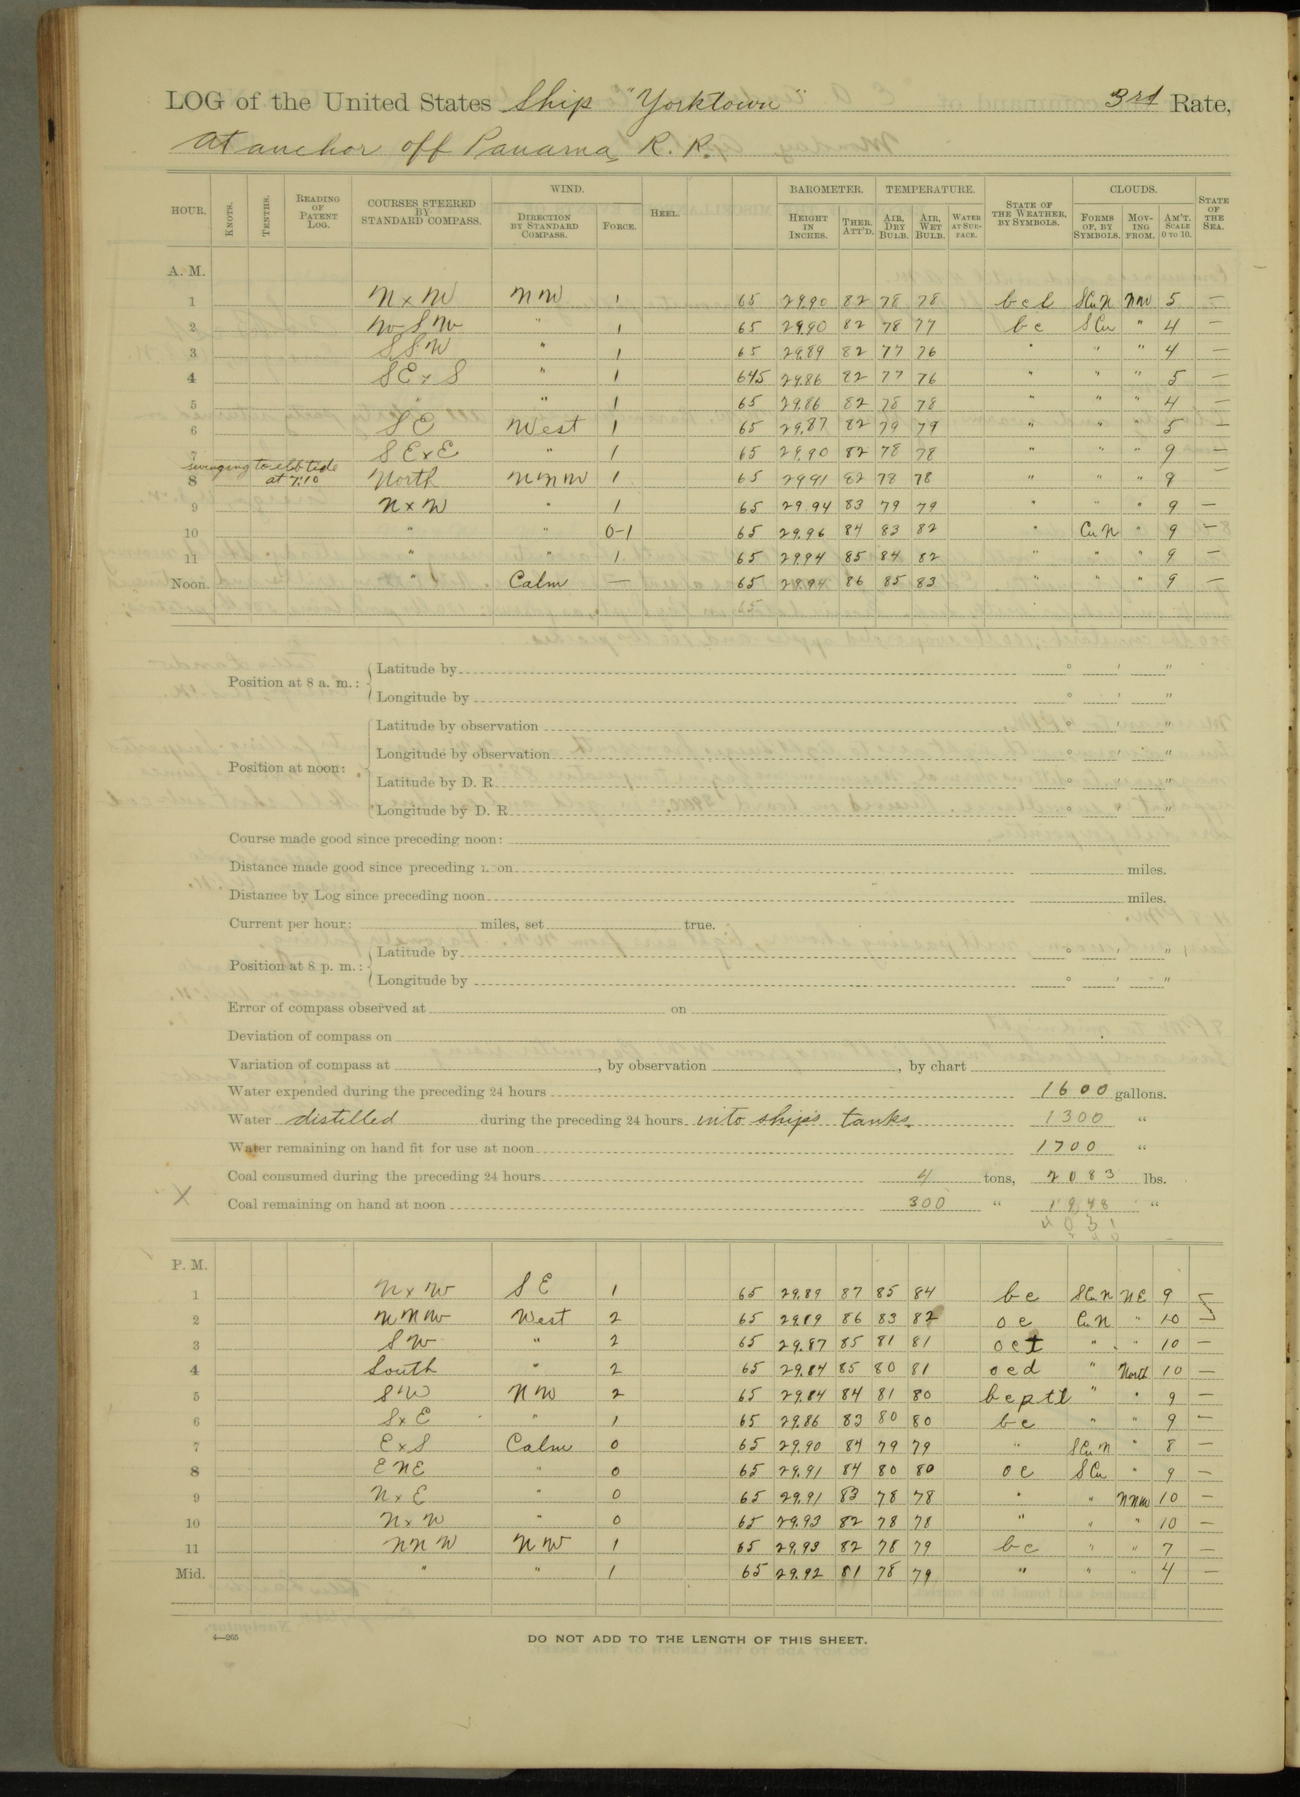 LOG of the United States Ship "Yorktown" 3rd Rate,
At anchor off Panama, R. R.
HOUR. KNOTS. TENTHS. READING OF PATENT LOG. COURSES STEERED BY STANDARD COMPASS. WIND. DIRECTION BY STANDARD COMPASS. FORCE. HEEL. BAROMETER. HEIGHT IN INCHES. THER. ATT'D. TEMPERATURE. AIR, DRY BULB. AIR, WET BULB. WATER AT SURFACE. STATE OF THE WEATHER, BY SYMBOLS. CLOUDS. FORMS OF, BY SYMBOLS. MOVING FROM. AM'T. SCALE 0 TO 10. STATE OF THE SEA.
A. M.
1 N x W NW 1 65 29.90 82 78 78 bcl SCuN NW 5 —
2 " 1 65 29.90 82 78 77 bc SCu " 4 —
3 SSW " 1 65 29.89 82 77 76 " " " 4 —
4 SE x S " 1 645 29.86 82 77 76 " " " 5 —
5 " " 1 65 29.86 82 78 78 " " " 4 —
6 SE West 1 65 29.87 82 79 79 " " " 5 —
7 SE x E " 1 65 29.90 82 78 78 " " " 9 —
swinging to ebb tide
8 at 7:10 North NNW 1 65 29.91 82 78 78 " " " 9 —
9 N x W " 1 65 29.94 83 79 79 " " " 9 —
10 " " 0-1 65 29.96 84 83 82 " CuN " 9 —
11 " " 1 65 29.94 85 84 82 " " " 9 —
Noon. " Calm — 65 29.94 86 85 83 " " " 9 —
65
Position at 8 a. m.: Latitude by ° ' "
Longitude by ° ' "
Position at noon: Latitude by observation ° ' "
Longitude by observation ° ' "
Latitude by D. R. ° ' "
Longitude by D. R. ° ' "
Course made good since preceding noon:
Distance made good since preceding noon miles.
Distance by Log since preceding noon miles.
Current per hour: miles, set true.
Position at 8 p. m.: Latitude by ° ' "
Longitude by ° ' "
Error of compass observed at on
Deviation of compass on
Variation of compass at , by observation , by chart
Water expended during the preceding 24 hours 1600 gallons.
Water distilled during the preceding 24 hours into ship's tanks. 1300 "
Water remaining on hand fit for use at noon 1700 "
Coal consumed during the preceding 24 hours 4 tons, 2083 lbs.
X Coal remaining on hand at noon 300 " 1948 "
4031
P. M.
1 N x W SE 1 65 29.89 87 85 84 bc SCuN NE 9
2 NNW West 2 65 29.89 86 83 82 oc CuN " 10
3 SW " 2 65 29.87 85 81 81 oct " " 10 —
4 South " 2 65 29.84 85 80 81 ocd " North 10 —
5 S'W NW 2 65 29.84 84 81 80 bcptl " " 9 —
6 S x E " 1 65 29.86 83 80 80 bc " " 9 —
7 E x S Calm 0 65 29.90 84 79 79 " SCuN " 8 —
8 ENE " 0 65 29.91 84 80 80 oc SCu " 9 —
9 N x E " 0 65 29.91 83 78 78 " " NNW 10 —
10 N x W " 0 65 29.93 82 78 78 " " " 10 —
11 NNW NW 1 65 29.93 82 78 79 bc " " 7 —
Mid. " " 1 65 29.92 81 78 79 " " " 4 —
4—265 DO NOT ADD TO THE LENGTH OF THIS SHEET.